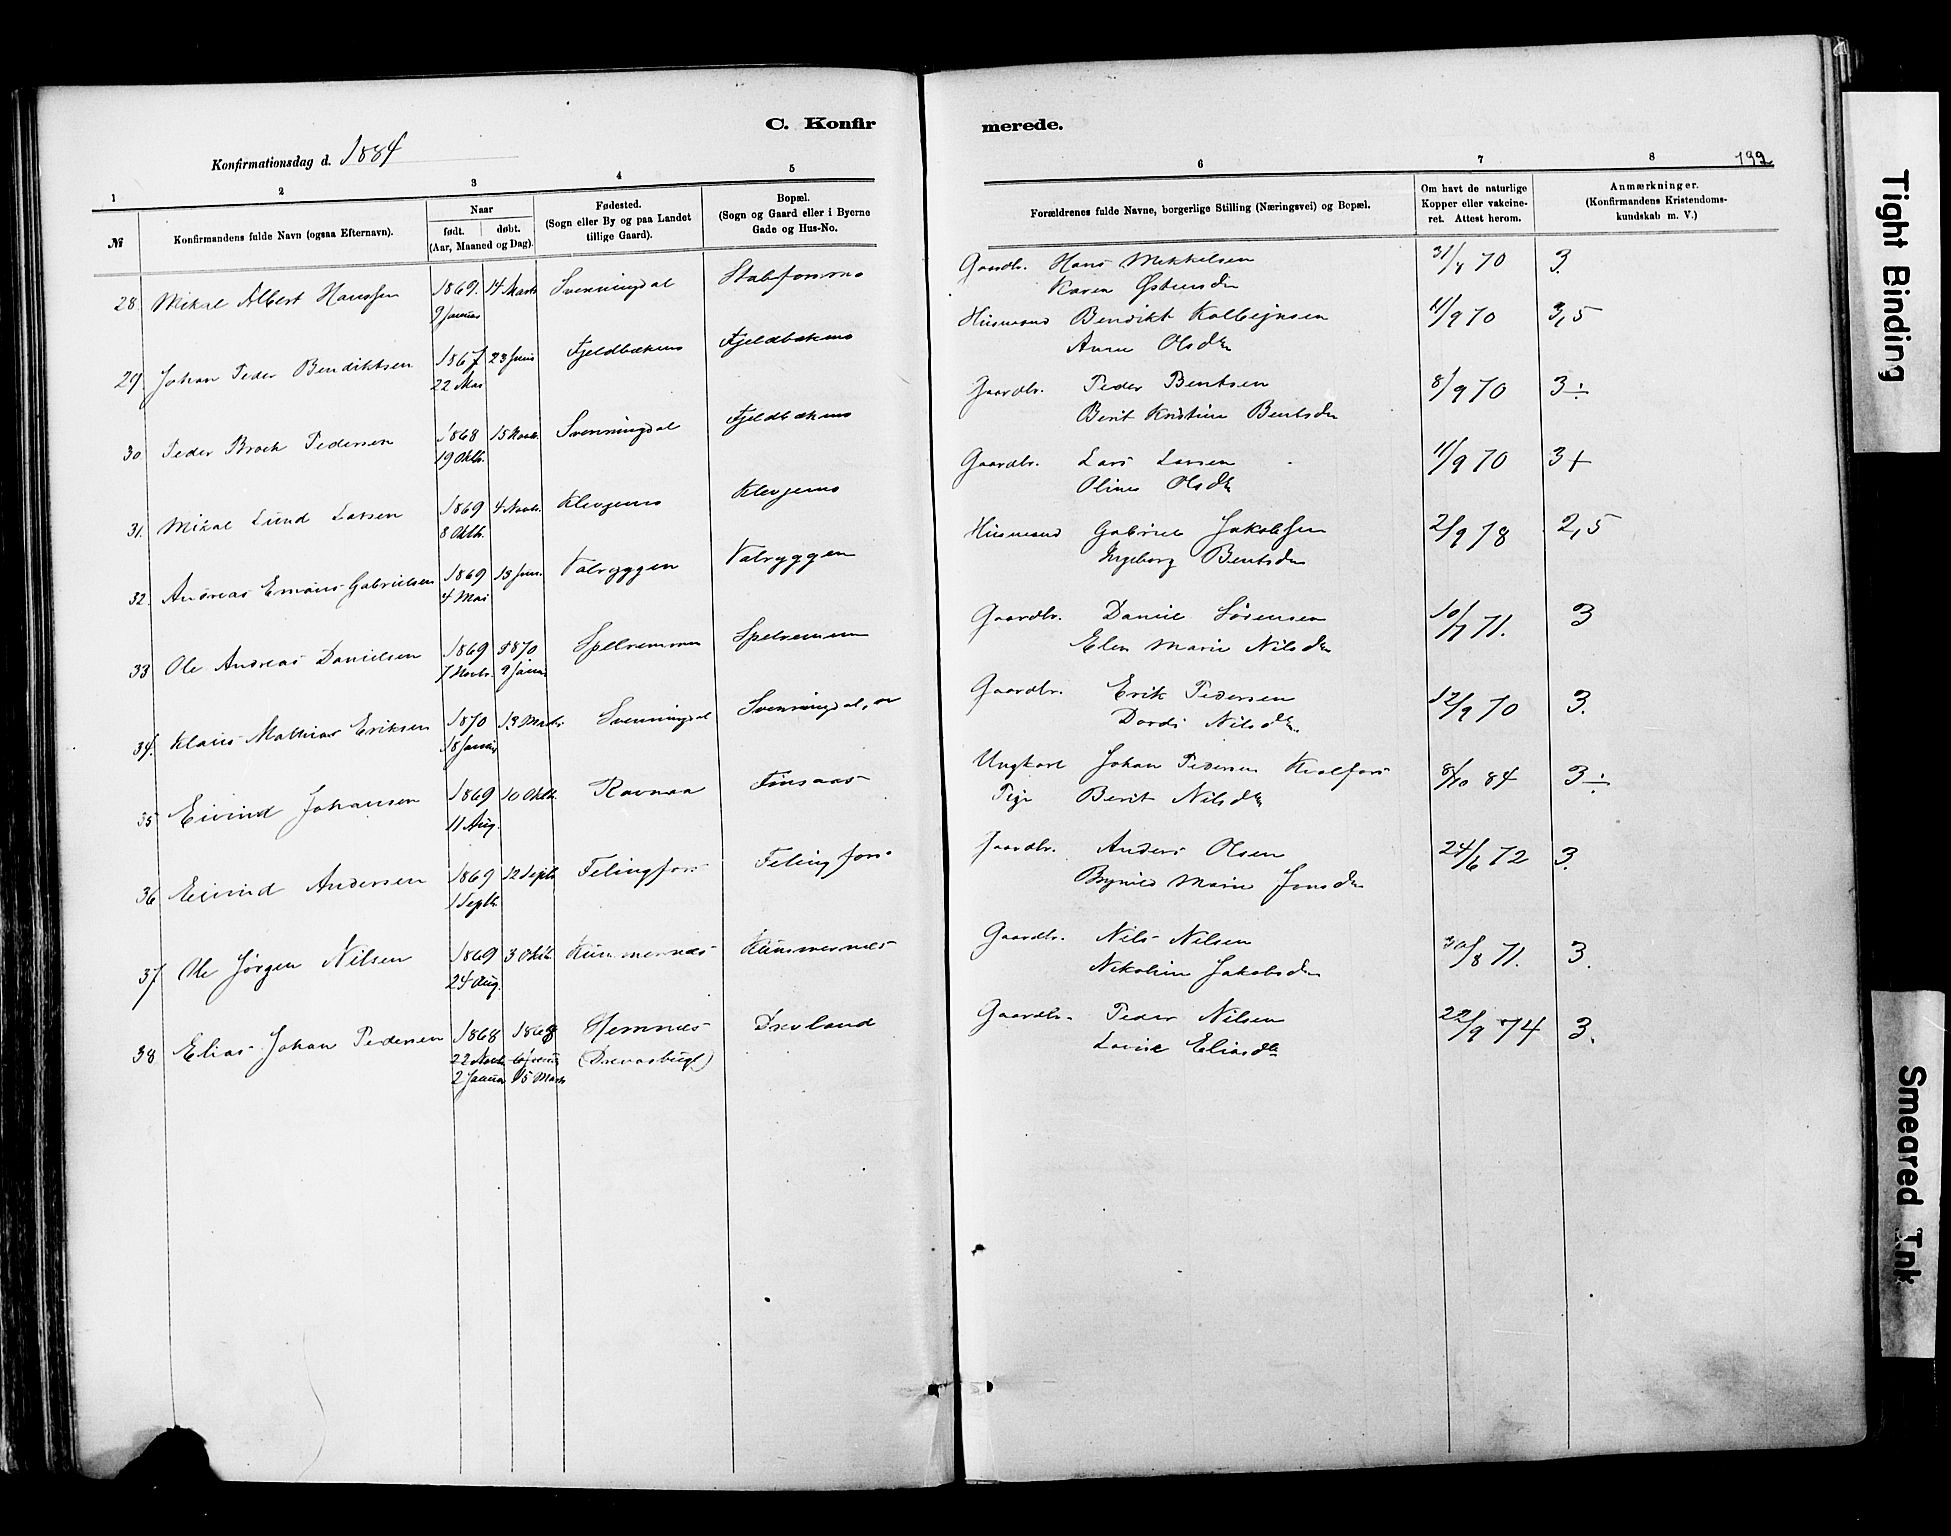 C. Konfirmerede.
Konfirmationsdag d. 1884
192
1 2 3 4 5 6 7 8
№
Konfirmandens fulde Navn (ogsaa Efternavn).
Naar
født. døbt.
(Aar, Maaned og Dag).
Fødested.
(Sogn eller By og paa Landet
tillige Gaard).
Bopæl.
(Sogn og Gaard eller i Byerne
Gade og Hus-No.
Forældrenes fulde Navne, borgerlige Stilling (Næringsvei) og Bopæl.
Om havt de naturlige
Kopper eller vakcine-
ret. Attest herom.
Anmærkninger.
(Konfirmandens Kristendoms-
kundskab m. V.)
28. Mikal Albert Hanssen 1869. 14 Marts Svenningdal Stabforsmo Gaardbr. Hans Mikkelsen 31/7 70 3.
9 Januar Karen Østensdr
29. Johan Peder Bendiktsen 1867 23 Juni Fjeldbækmo Fjeldbækmo Husmand Bendikt Kolbejnsen 11/9 70 3,5
22 Mai Anne Olsdtr
30 Peder Broch Pedersen 1868 15 Novb. Svenningdal Fjeldbækmo Gaardbr. Peder Bentsen 8/9 70 3÷
19 Oktb. Berit Kristine Bentsdtr
31. Mikal Lund Larsen 1869 4 Novb. Klevjemo Klevjemo Gaardbr. Lars Larsen 11/9 70 3+
8 Oktb. Oline Olsdtr
32. Andreas Emaus Gabrielsen 1869 13 Jun. Valryggen Valryggen Husmand Gabriel Jakobsen 2/9 78 2,5
4 Mai Ingeborg Bentsdtr
33 Ole Andreas Danielsen 1869 1870 Spelremmen Spelremmen Gaardbr. Daniel Sørensen 10/7 71. 3
7 Novbr. 9 Janua Elen Marie Nilsdtr
34. Klaus Mathias Eriksen 1870 13 Marts Svenningdal Svenningdal, Gaardbr. Erik Pedersen 12/9 70 3.
18 Januar Dordi Nilsdtr.
35 Eivind Johansen 1869 10 Oktb. Ravnaa Finsaas Ungkarl Johan Pedersen Kvalfors 8/10 84 3÷
11 Aug. Pige Berit Nilsdtr
36 Eivind Andersen 1869 12 Septb Felingfors Felingfors Gaardbr. Anders Olsen 24/6 72 3.
1 Septb. Marie Jonsdtr
37 Ole Jørgen Nilsen 1869 3 Oktb. Kummernes Kummernes Gaardbr. Nils Nilsen 30/8 71. 3.
24 Aug. Nikoline Jakobsdtr
38 Elias Johan Pedersen 1868 1868 Hemnes Drevland Gaardbr. Peder Nilsen 22/9 74 3.
22 Novb. (Drevasbugt) Lovise Eliasdtr
2 Januar 15 Marts
Tight Binding
Smeared Ink